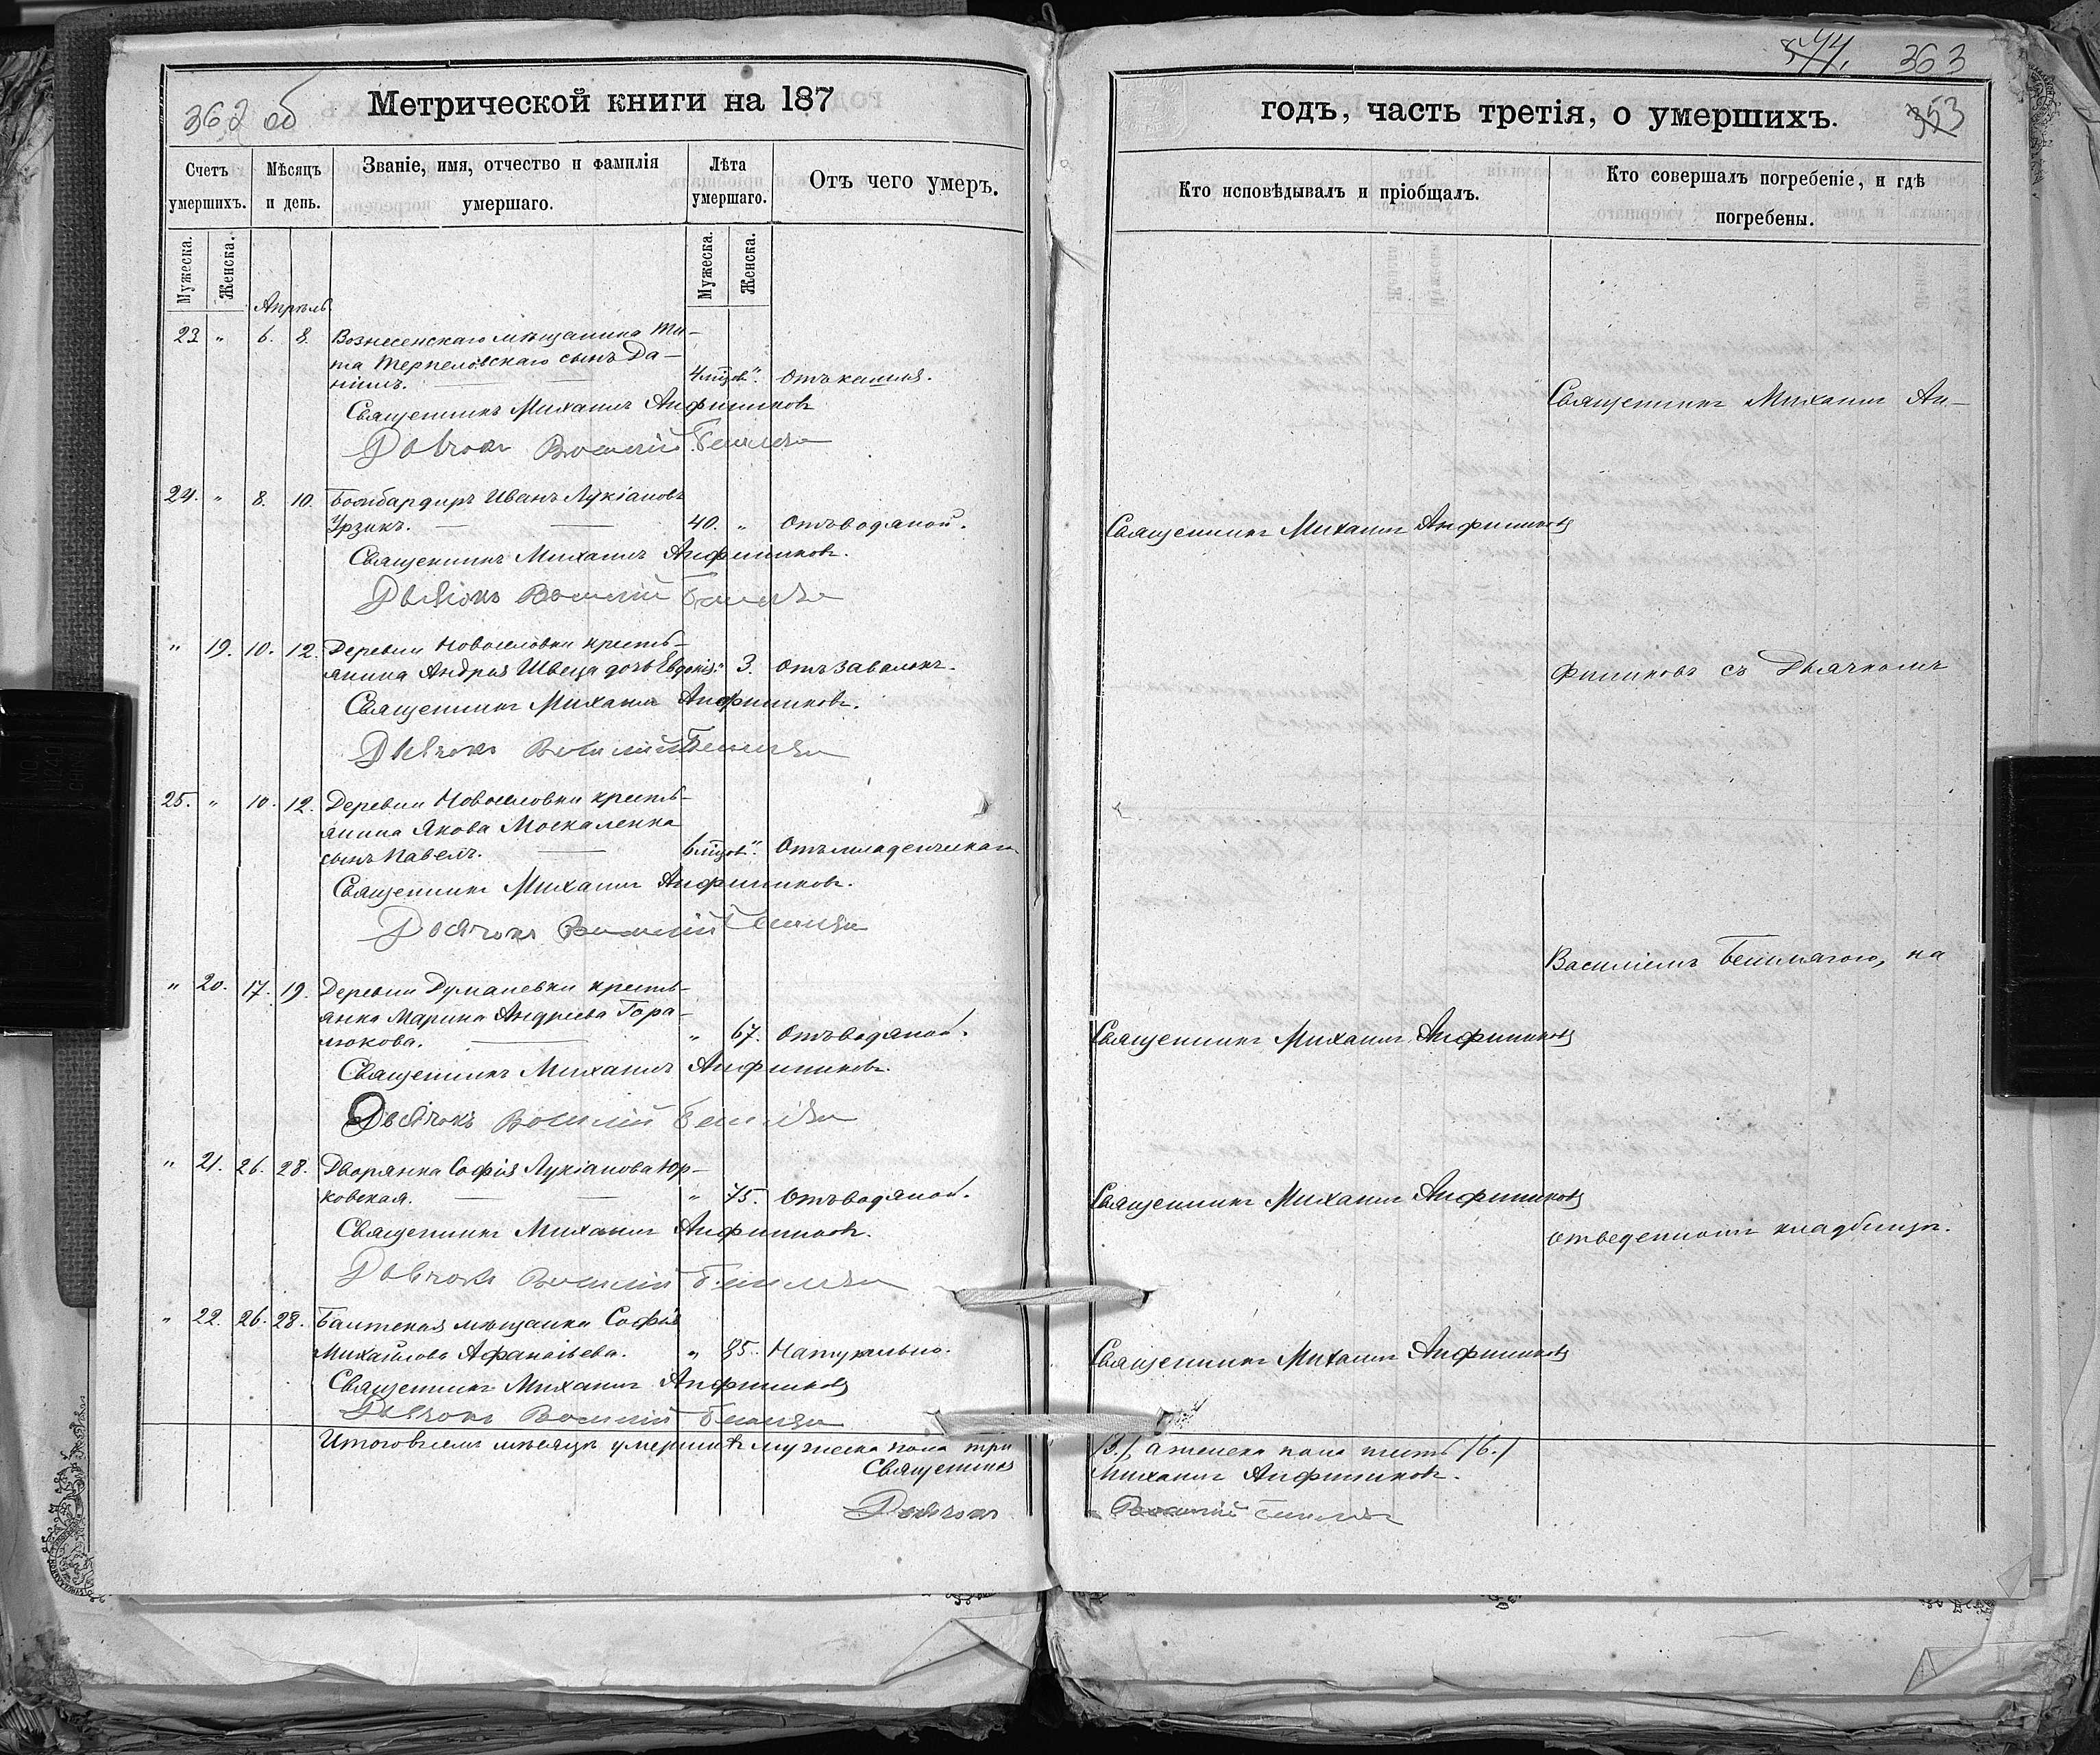 362 об
Метрической книги на 187
Счетъ умершихъ.
Мѣсяцъ и день.
Званіе, имя, отчество и фамилія умершаго.
Лѣта умершаго.
Отъ чего умеръ.
Мужеска.
Женска.
Мужеска.
Женска.
Апрѣль
23 " 6. 8. Вознесенскаго мѣщанина Ти-
та Терпеловскаго сынъ Да-
ніилъ. 4 мцов. " Отъ кашля.
Священникъ Михаилъ Анфиников
Дьячокъ Василій
24. " 8. 10. Бомбардиръ Иванъ Лукіановъ
Урзикъ. 40. " Отъ водяной.
Священникъ Михаилъ Анфиниковъ.
Дьячокъ Василій
" 19. 10. 12. Деревни Новоселовки кресть-
янина Андрея Швеца дочь Евдокія " 3. Отъ завалокъ.
Священникъ Михаилъ Анфиниковъ.
Дьячокъ Василій
25. " 10. 12. Деревни Новоселовки кресть-
янина Якова Москаленка
сынъ Павелъ. 6 мцов. " Отъ младенческаго
Священникъ Михаилъ Анфиниковъ.
Дьячокъ Василій
" 20. 17. 19. Деревни Думаневки кресть-
янка Марина Андреева Гора-
люкова. " 67. Отъ водяной.
Священникъ Михаилъ Анфиниковъ.
Дьячокъ Василій
" 21. 26. 28. Дворянка Софія Лукіанова Юр-
ковская. " 75. Отъ водяной.
Священникъ Михаилъ Анфиниковъ.
Дьячокъ Василій
" 22. 26. 28. Балтская мѣщанка Софія
Михайлова Афанасьева. " 85. Натурально.
Священникъ Михаилъ Анфиниковъ
Дьячокъ Василій
Итого въ семъ мѣсяцѣ умершихъ мужеска пола три
Священникъ
Дьячокъ
44. 363
353
годъ, часть третія, о умершихъ.
Кто исповѣдывалъ и пріобщалъ.
Кто совершалъ погребеніе, и гдѣ погребены.
Священникъ Михаилъ Ан-
Священникъ Михаилъ Анфиниковъ
финиковъ съ Дьячкомъ
Василіемъ на
Священникъ Михаилъ Анфиниковъ
Священникъ Михаилъ Анфиниковъ
отведенномъ кладбищѣ.
Священникъ Михаилъ Анфиниковъ
/3./, а женска пола шесть /6./
Михаилъ Анфиниковъ.
Василій